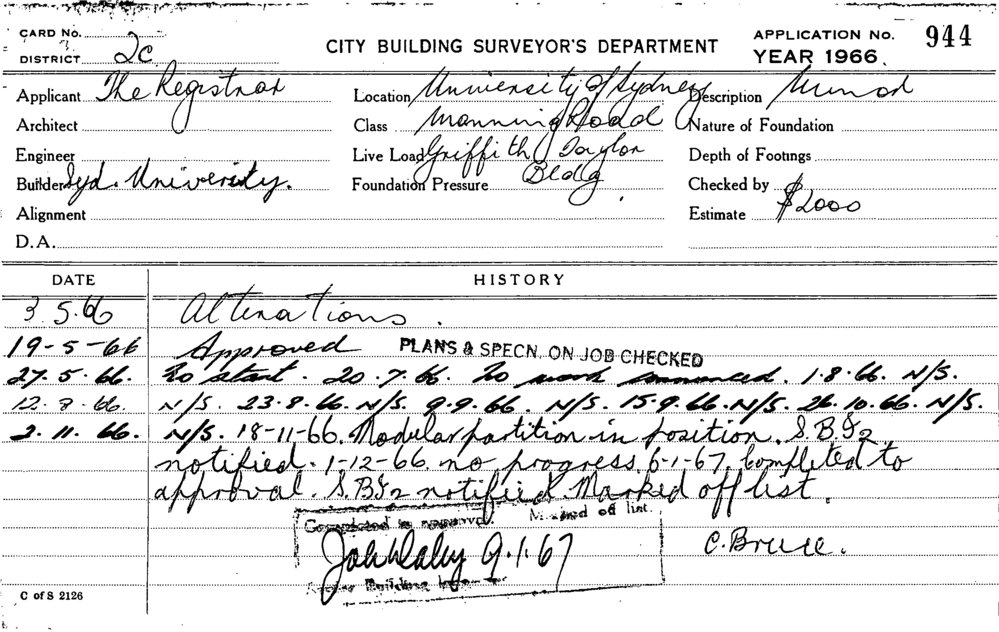 CARD No.
DISTRICT 2c
CITY BUILDING SURVEYOR'S DEPARTMENT
APPLICATION No. 944
YEAR 1966.
Applicant The Registrar
Location University of Sydney
Description Minor
Architect
Class Manning Road
Nature of Foundation
Engineer
Live Load Griffith Taylor
Depth of Footings
Builder Syd. University.
Foundation Pressure Bldg.
Checked by
Alignment
Estimate $2000
D.A.
DATE HISTORY
3.5.66 Alterations.
19-5-66 Approved PLANS & SPECN. ON JOB CHECKED
27.5.66. No start. 20.7.66. No work commenced. 1.8.66. N/S.
12.8.66. N/S. 23.8.66. N/S. 9.9.66. N/S. 15.9.66. N/S. 26.10.66. N/S.
2.11.66. N/S. 18-11-66. Modular partition in position. S.B.I2
notified. 1-12-66. no progress. 6-1-67. Completed to
approval. S.B.I2 notified. Marked off list.
Completed to approval. Marked off list.
John Daley 9.1.67
C. Bruce.
Senior Building Inspector
C of S 2126